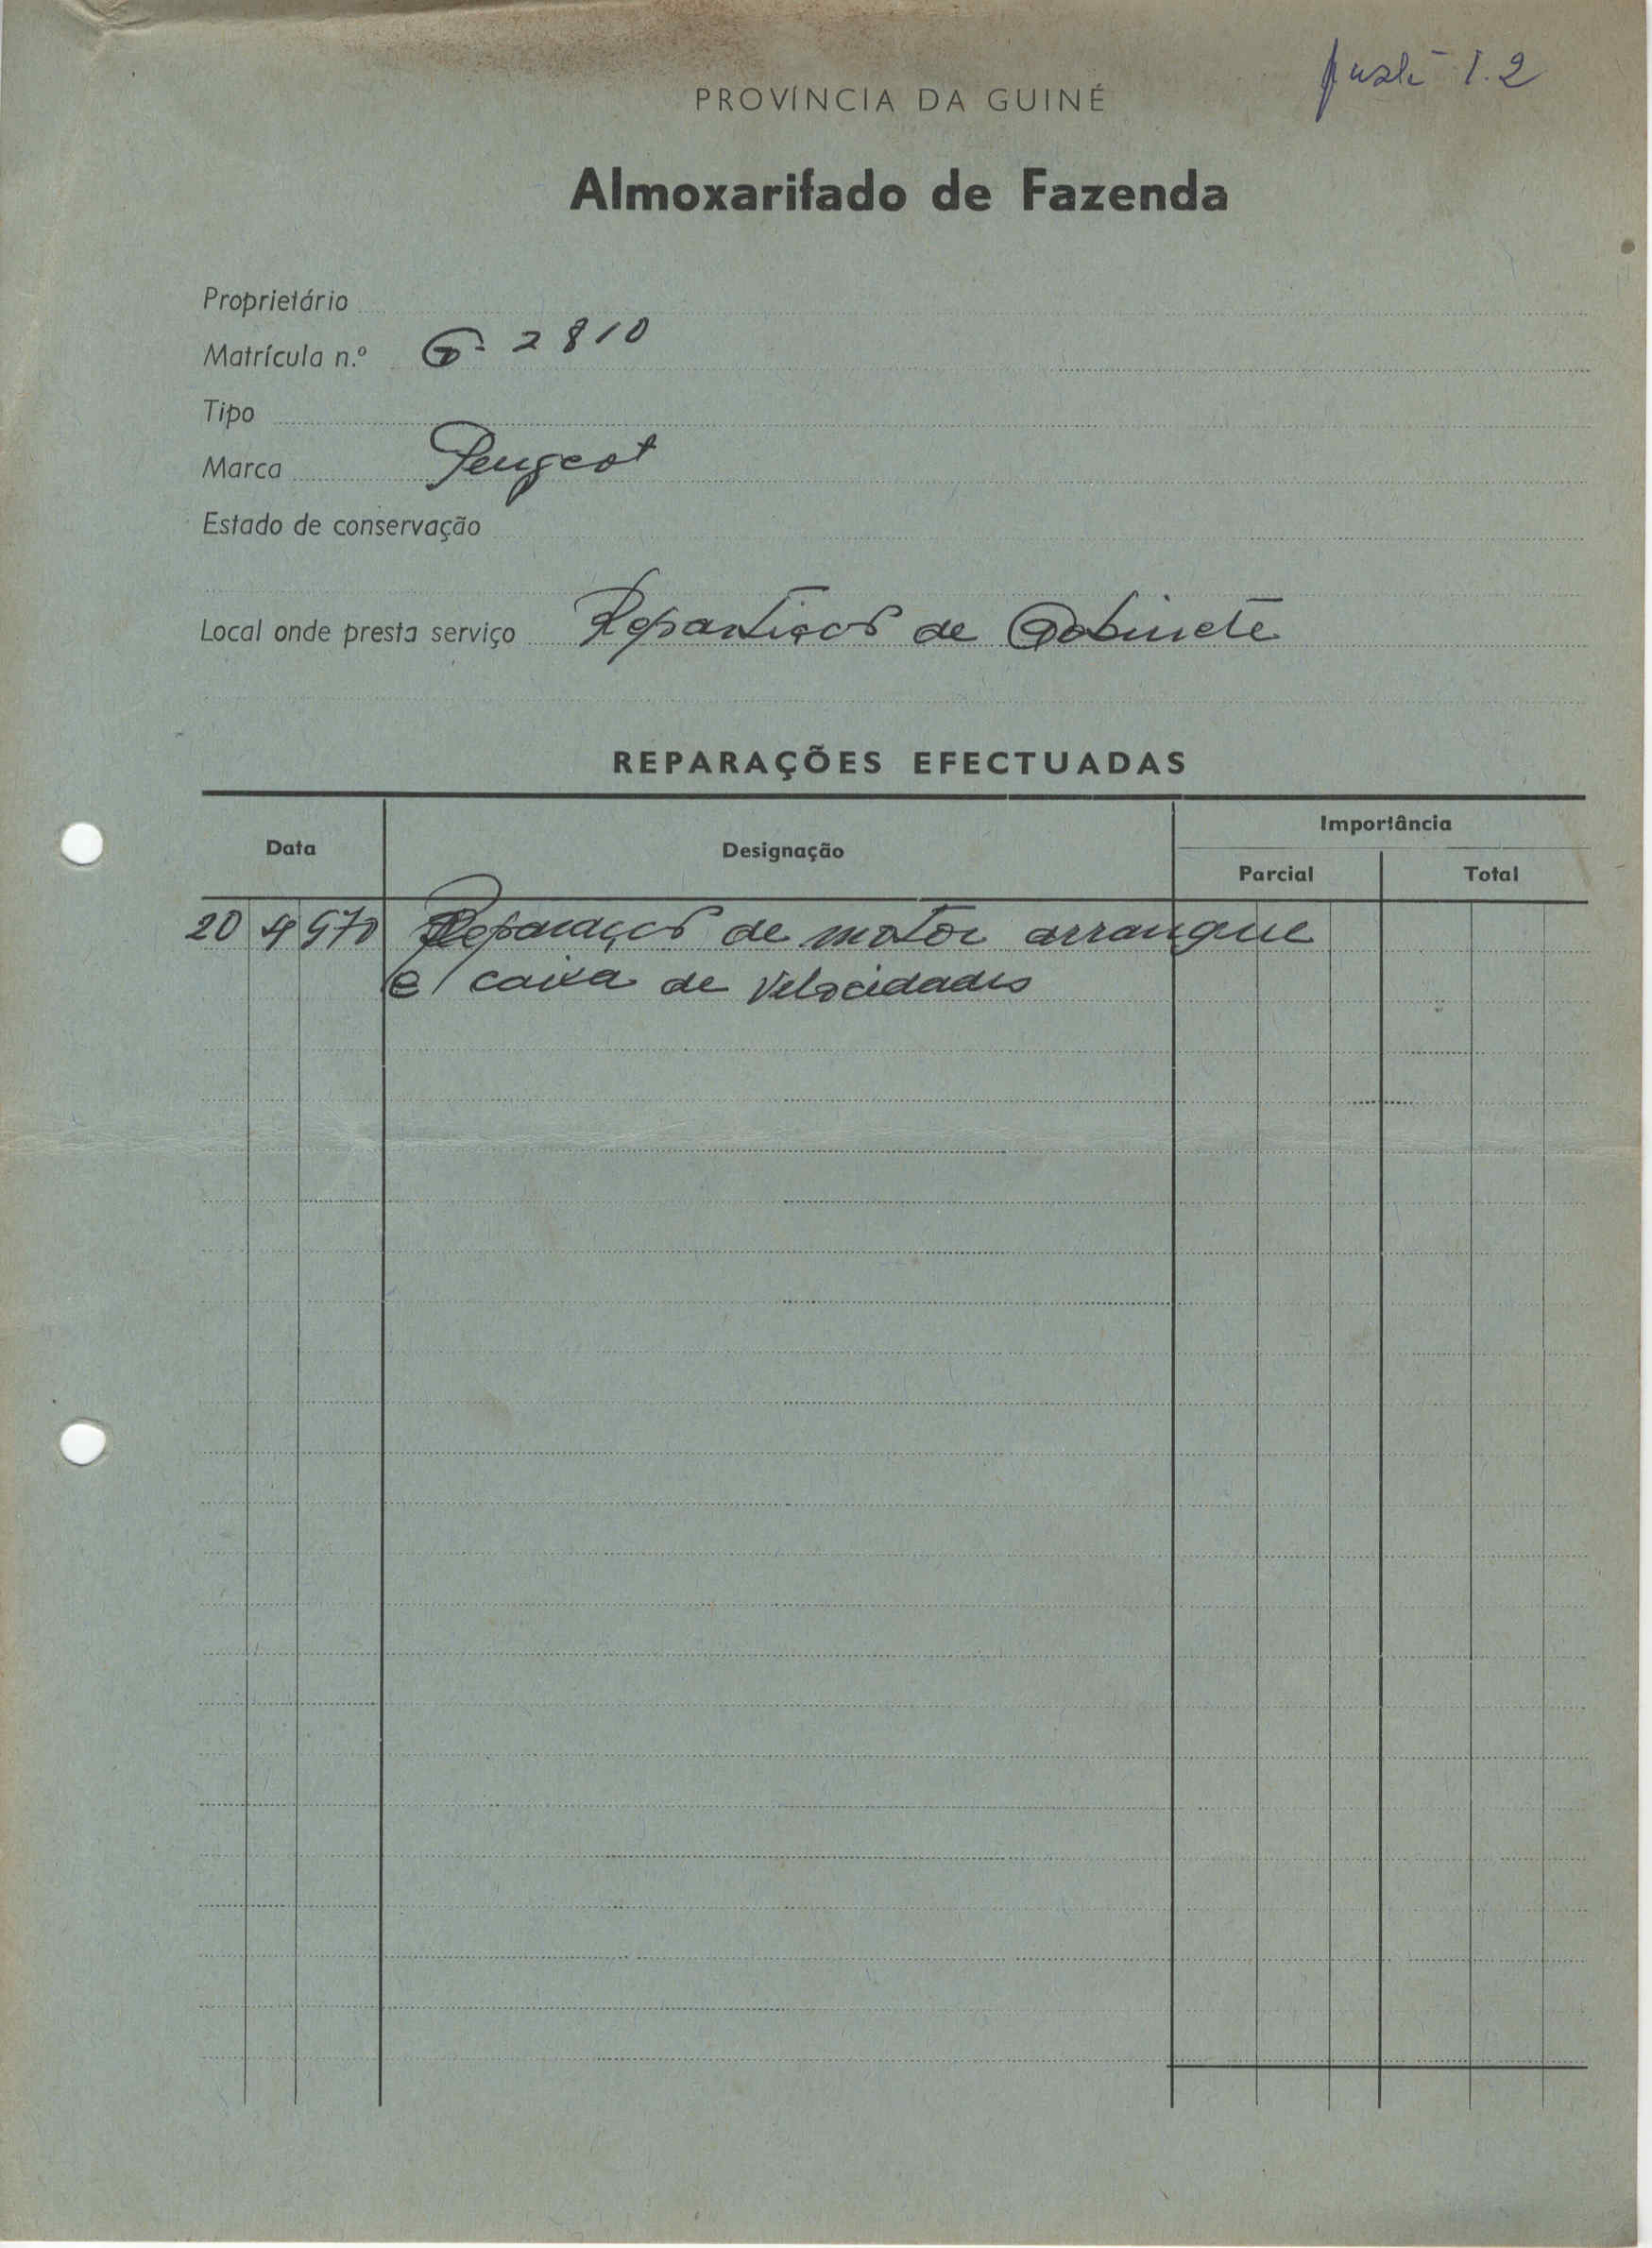 1.2
PROVÍNCIA DA GUINÉ
Almoxarifado de Fazenda
Proprietário
Matrícula n.º G- 2810
Tipo
Marca Peugeot
Estado de conservação
Local onde presta serviço Repartição de Gabinete
REPARAÇÕES EFECTUADAS
Data Designação Importância
Parcial Total
20 4 970 Reparação de motor arranque
e caixa de velocidades